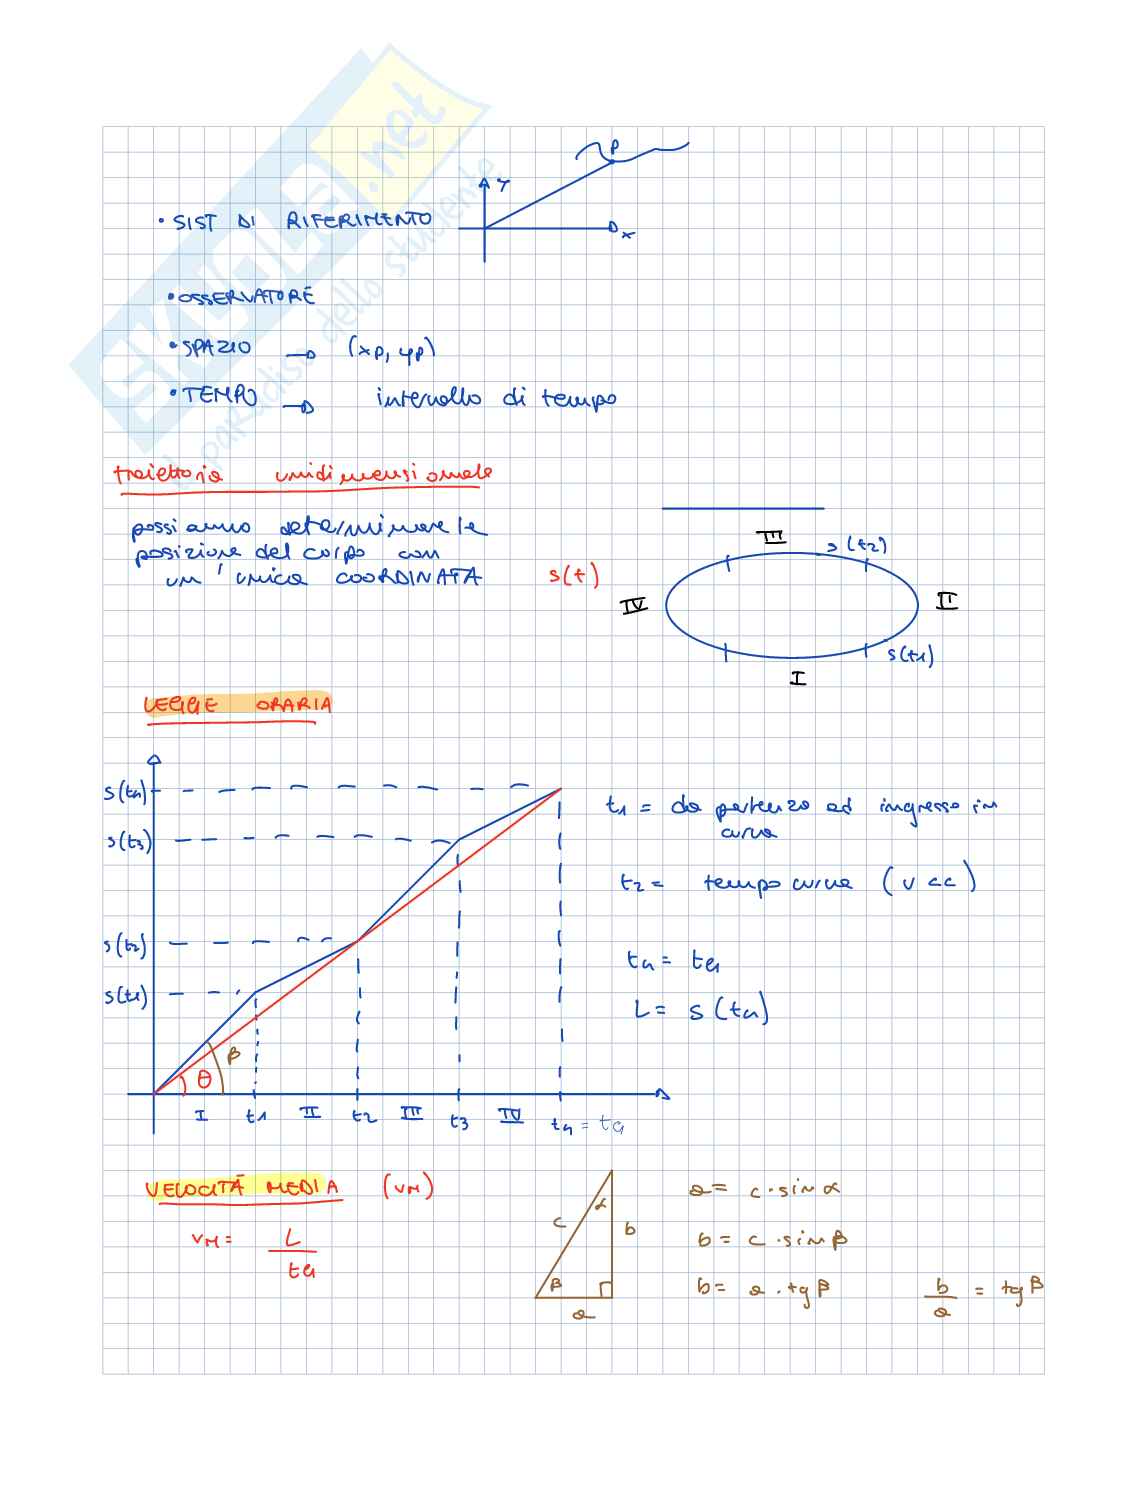 SKUOLA.net
il paradiso dello studente
P
Y
• SIST DI RIFERIMENTO
x
• OSSERVATORE
• SPAZIO → (xp, yp)
• TEMPO → intervallo di tempo
traiettoria unidimensionale
possiamo determinare la
posizione del corpo con
un'unica COORDINATA
s(t)
III
s(t2)
IV
II
s(t1)
I
LEGGE ORARIA
s(t4)
s(t3)
s(t2)
s(t1)
θ
β
I t1 II t2 III t3 IV t4 = tG
t1 = da partenza ad ingresso in
curva
t2 = tempo curva (v <<)
t4 = tG
L = s(t4)
VELOCITÀ MEDIA (vM)
vM = L / tG
α
c
b
β
a
a = c · sin α
b = c · sin β
b = a · tg β
b / a = tg β